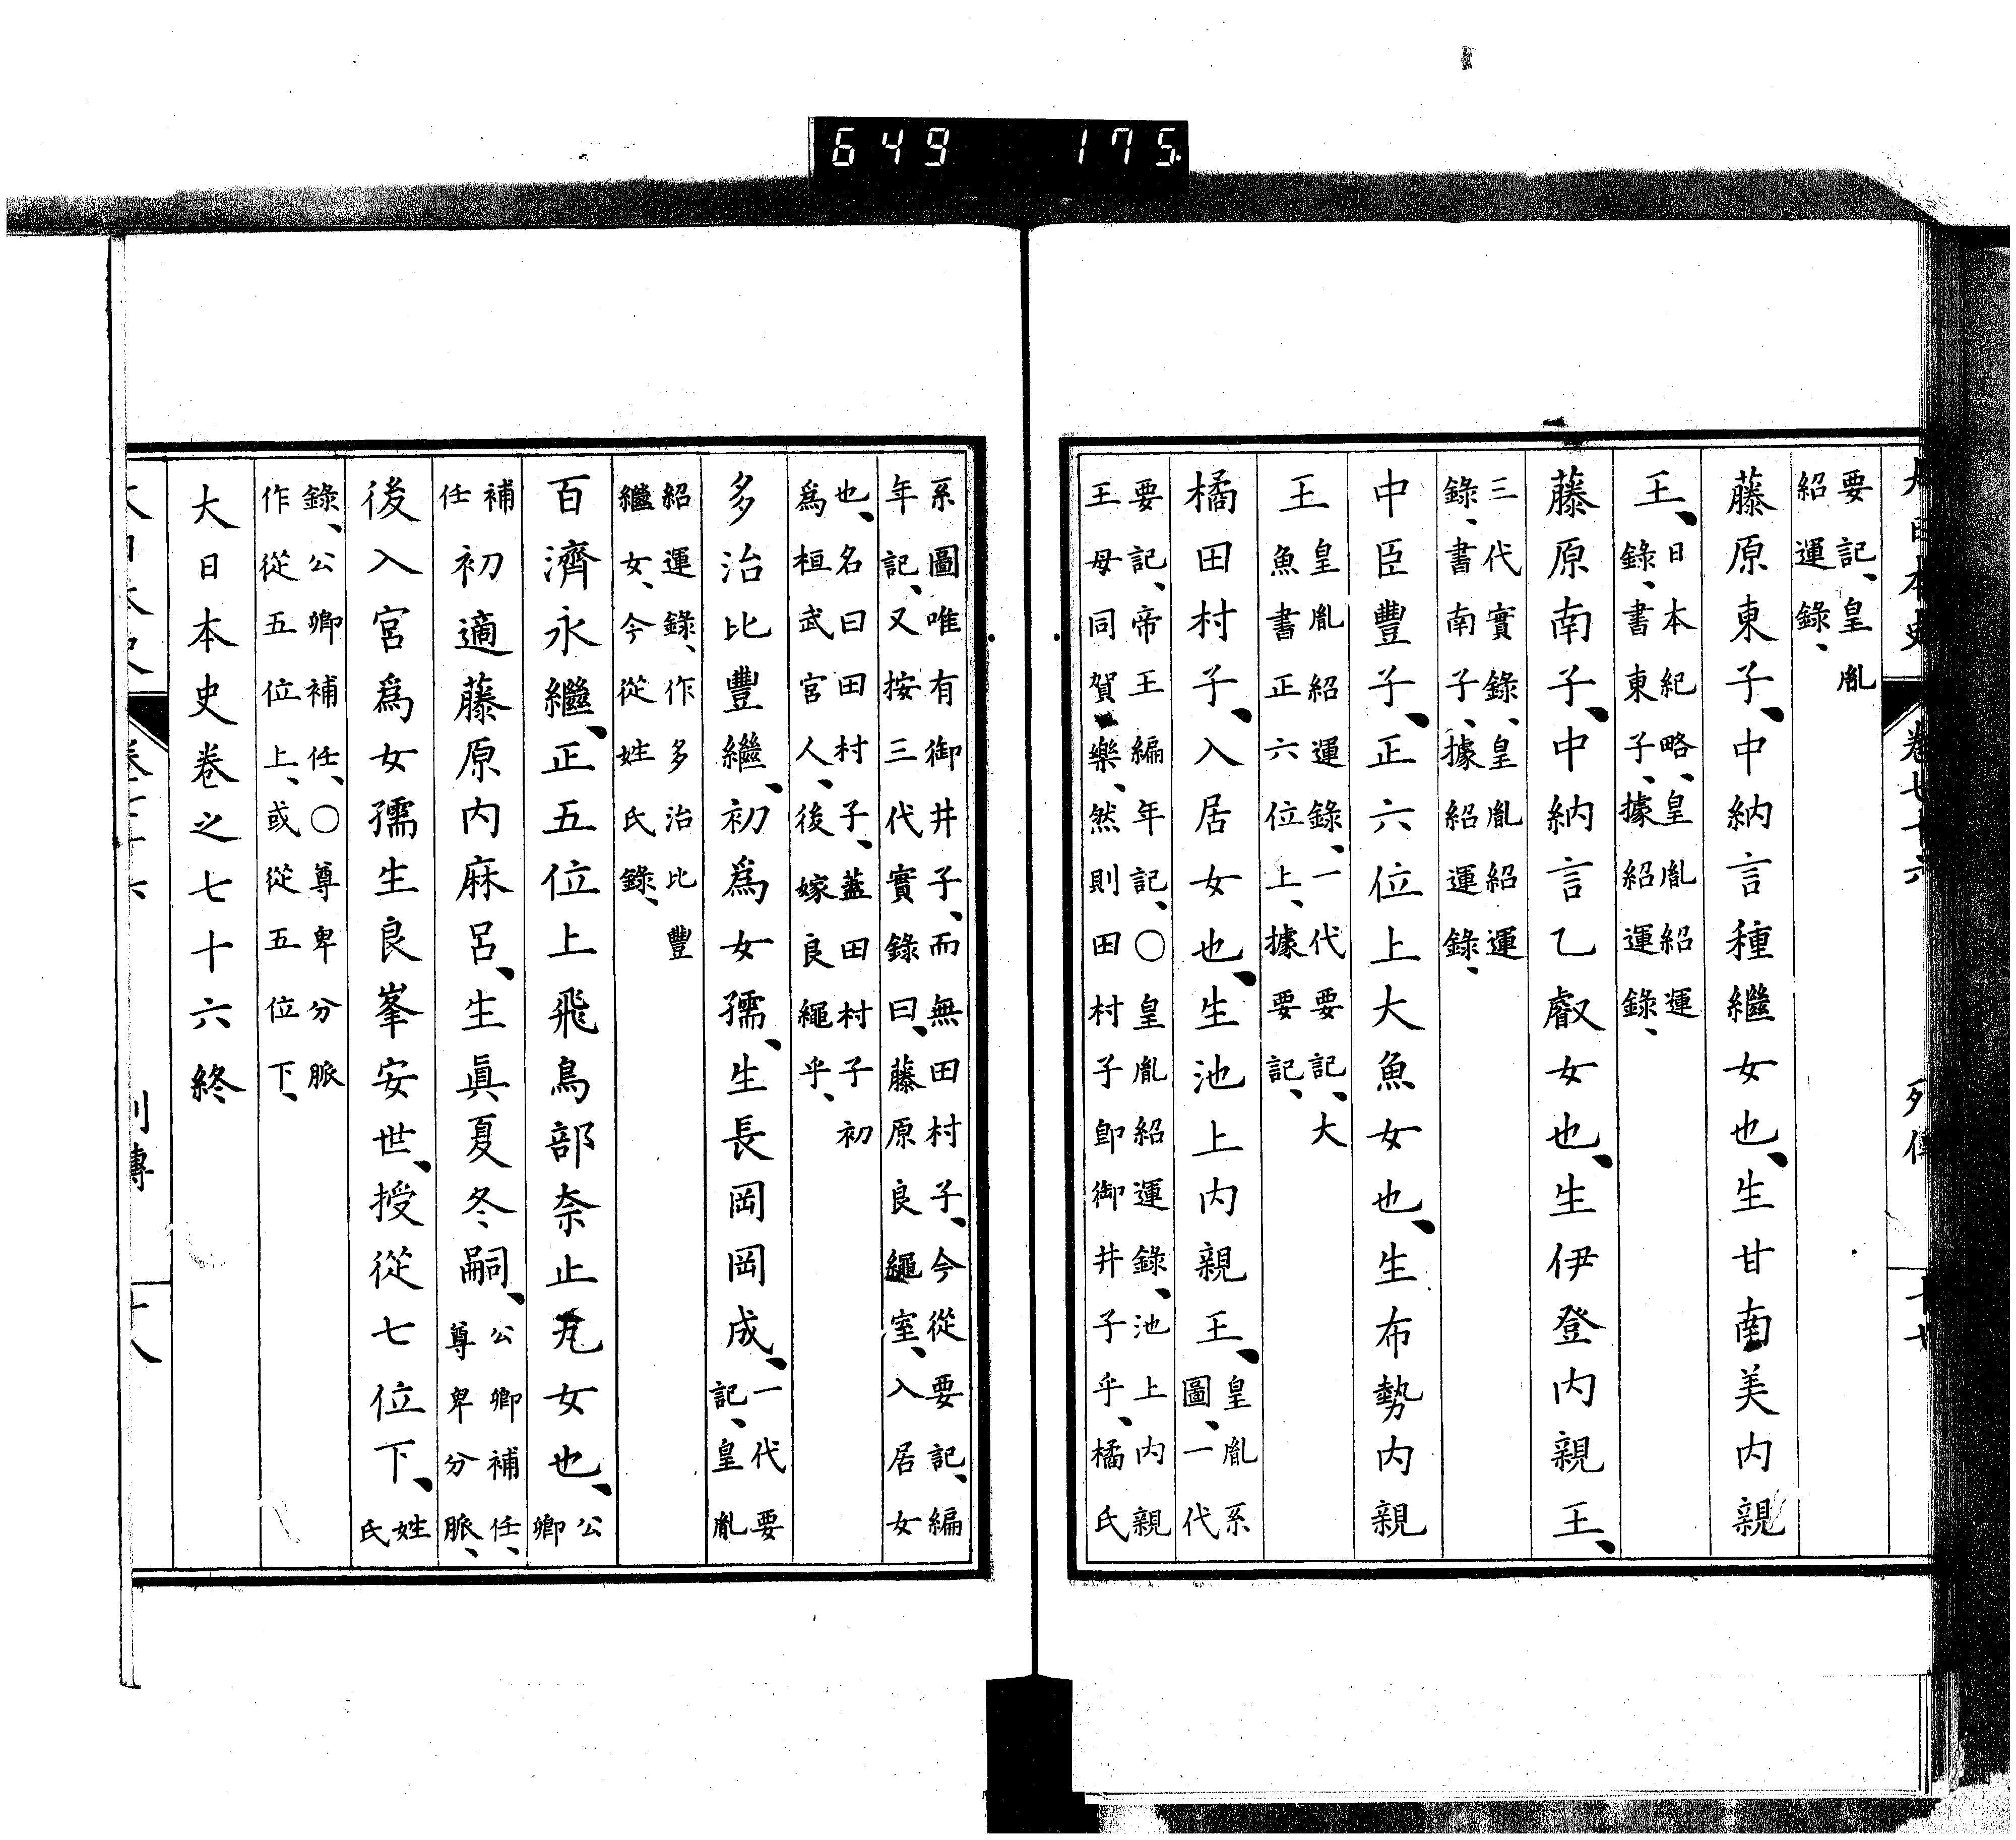 649 175.
大日本史 卷七十六 列傳
要記、皇胤
紹運錄、
藤原東子、中納言種繼女也、生甘南美内親
王、日本紀略、皇胤紹運
錄、書東子、據紹運錄、
藤原南子、中納言乙叡女也、生伊登内親王、
三代實錄、皇胤紹運
錄、書南子、據紹運錄、
中臣豐子、正六位上大魚女也、生布勢内親
王皇胤紹運錄、一代要記、大
魚書正六位上、據要記、
橘田村子、入居女也、生池上内親王、皇胤系
圖、一代
要記、帝王編年記、○皇胤紹運錄、池上内親
王母同賀樂、然則田村子卽御井子乎、橘氏
系圖唯有御井子、而無田村子、今從要記、編
年記、又按三代實錄曰、藤原良繩室、入居女
也、名曰田村子、蓋田村子初
爲桓武宮人、後嫁良繩乎、
多治比豐繼、初爲女孺、生長岡岡成、一代要
記、皇胤
紹運錄、作多治比豐
繼女、今從姓氏錄、
百濟永繼、正五位上飛鳥部奈止丸女也、公
卿
補
任初適藤原内麻呂、生眞夏冬嗣、公卿補任、
尊卑分脈、
後入宮爲女孺生良峯安世、授從七位下、姓
氏
錄、公卿補任、○尊卑分脈
作從五位上、或從五位下、
大日本史卷之七十六終
列傳